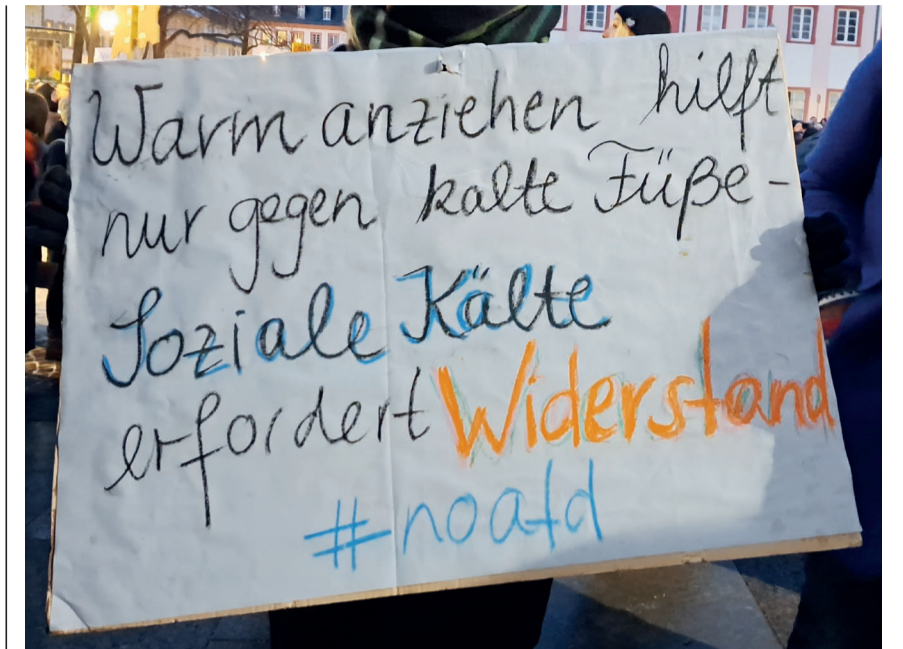 Warm anziehen hilft
nur gegen kalte Füße -
Soziale Kälte
erfordert Widerstand
#noafd